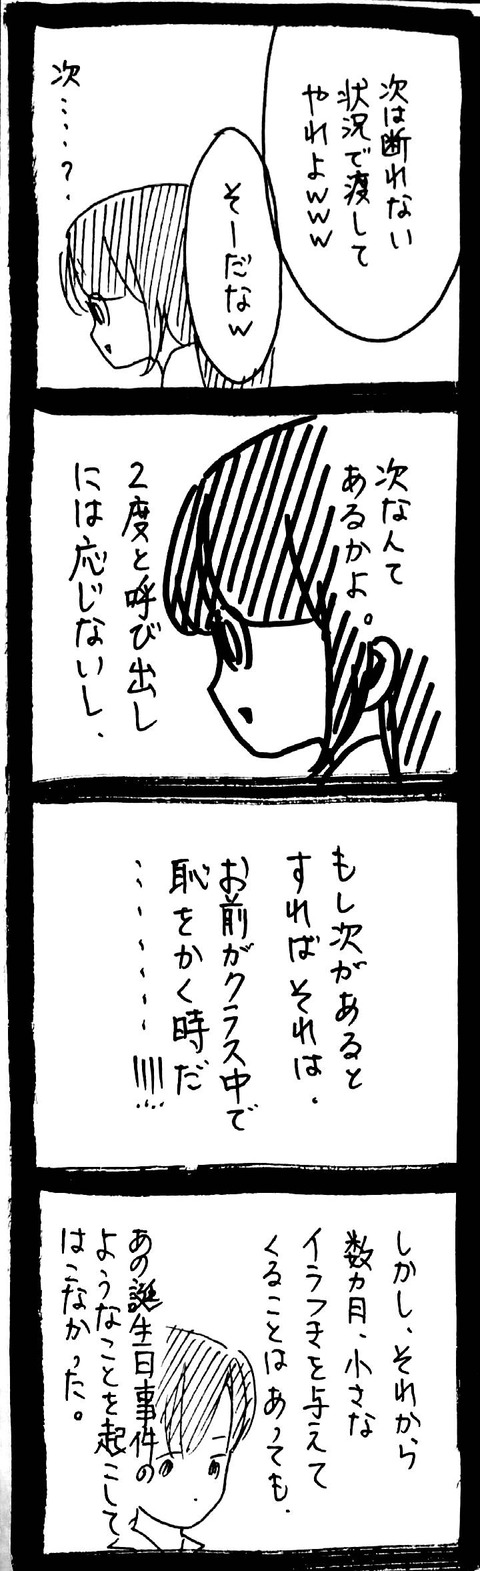 次は断れない
状況で渡して
やれよwww
そーだなw
次‥‥?
次なんて
あるかよ。
2度と呼び出し
には応じないし、
もし次があると
すればそれは、
お前がクラス中で
恥をかく時だ
‥‥‥‥!!!!!
しかし、それから
数カ月、小さな
イラつきを与えて
くることはあっても、
あの誕生日事件の
ようなことを起こして
はこなかった。